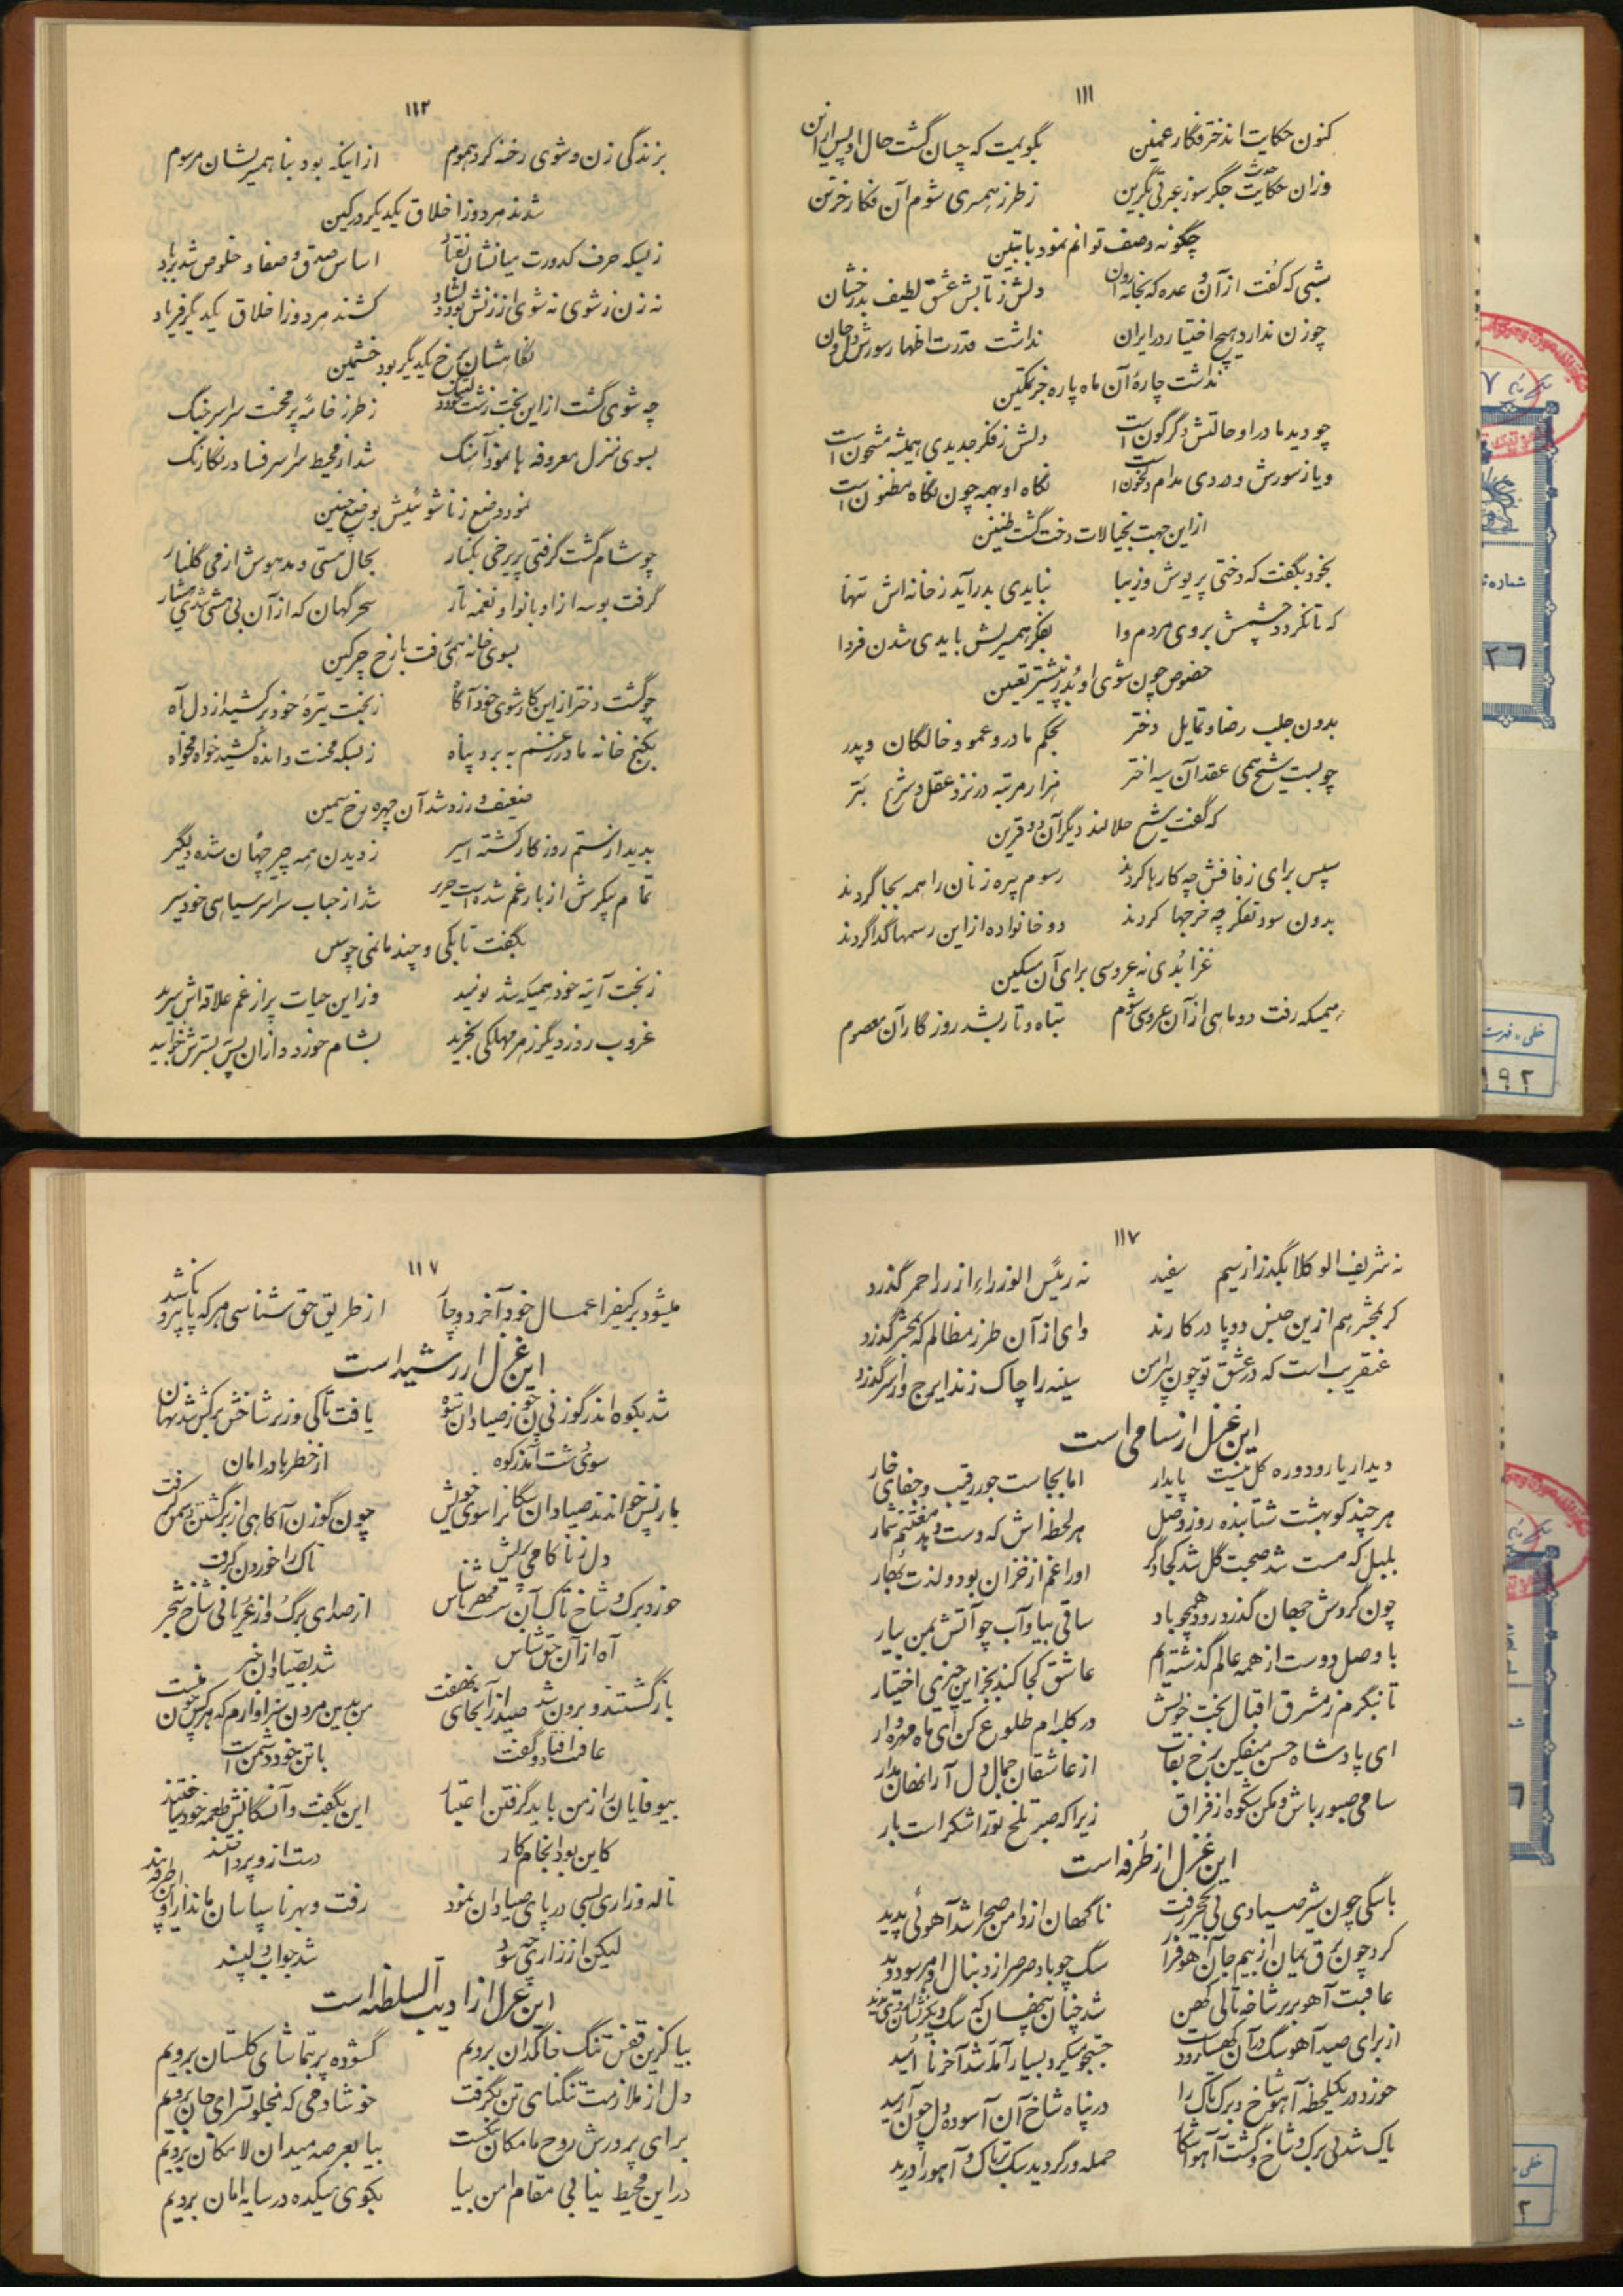 ۱۱۱
کنون حکایت اندختر فگار غمین بگویمت که چسان گشت حال او پس از این
وزان حکایت جگر سوز عبرتی بگزین ز طرز همسری شوم آن فکار حزین
چگونه وصف توانم نمود با تبیین
شبی که گفت از آن وعده که بخانه دلش ز تابش عشق لطیف بد رخشان
چو زن ندارد هیچ اختیار در ایران نداشت قدرت اظهار سورش دل و جان
نداشت چارهٔ آن ماه پاره جز تمکین
چو دید مادر او حالتش دگرگون است دلش ز فکر جدیدی همیشه مشحون است
و یا ز سورش و دردی مدام دلخون است نگاه او همه چون نگاه مظنون است
از این جهت بخیالات دخت گشت ظنین
بخود بگفت که دختی پریوش و زیبا نبایدی بدر آید ز خانه اش تنها
که تا نگردد چشمش بروی مردم وا بفکر همسریش بایدی شدن فردا
خصوص چون شوی او بُد ز پیشتر تعیین
بدون جلب رضا و تمایل دختر بحکم مادر و عمو و خالگان و پدر
چو بست شیخ همی عقد آن سیه اختر هزار مرتبه در نزد عقل و شرع بتر
که گفت شیخ حلالند دیگر آن دو قرین
سپس برای زفافش چه کارها کردند رسوم پیره زنان را همه بجا کردند
بدون سود تفکر چه خرجها کردند دو خانواده از این رسمها گدا گردند
عزا بُدی نه عروسی برای آن مسکین
همیکه رفت دو ماهی از آن عروسی شوم تباه و تار بشد روزگار آن معصوم
۱۱۲
بزندگی زن و شوی رخنه کرد هموم از اینکه بود بناهمسریشان مرسوم
شدند هر دو ز اخلاق یکدیگر در کین
ز بسکه حرف کدورت میانشان افتاد اساس صدق و صفا و خلوص شد بر باد
نه زن ز شوی نه شوی از زنش بود دلشاد کشند هر دو ز اخلاق یکدیگر فریاد
نگاهشان برخ یکدیگر بود خشمین
چه شوی گشت از این بخت زشت خود دلتنگ ز طرز خانهٔ پر محنت سراسر جنگ
بسوی منزل معروفه ها نمود آهنگ شد از محیط سراسر فساد رنگارنگ
نمود وضع زناشوئیش بوضع چنین
چو شام گشت گرفتی پریرخی بکنار بحال مستی و مدهوش از می گلنار
گرفت بوسه از او با نوا و نغمه تار سحرگهان که از آن بی هشی شدی هشیار
بسوی خانه همی رفت با رخ چرکین
چو گشت دختر از این کار شوی خود آگاه ز بخت تیرهٔ خود بر کشید از دل آه
بکنج خانه مادر ز غم ببرد پناه ز بسکه محنت و انده کشید خواه مخواه
ضعیف و زرد شد آن چهره رخ سیمین
بدید از ستم روزگار گشته اسیر ز دیدن همه چیز جهان شده دیگر
تمام پیکرش از بار غم شده است حریر شد از حباب سراسر سیاهی خود سیر
بگفت تا بکی و چند مانمی چونین
ز بخت آتیهٔ خود همیکه شد نومید وز این حیات پر از غم علاقه اش ببرید
غروب روز دیگر زهر مهلکی بخرید بشام خورد و از آن پس ببسترش خوابید
۱۱۷
نه شریف الوکلا بگذرد از سیم سفید نه رئیس الوزراء از زر احمر گذرد
گر بمحشر هم ازین جنس دو پا در کارند وای از آن طرز مظالم که بمحشر گذرد
عنقریب است که در عشق تو چون پیراهن سینه را چاک زند ایرج و از سر گذرد
این غزل از سامی است
دیدار یار و دوره گل نیست پایدار اما بجاست جور رقیب و جفای خار
هر چند کو بهشت شتابنده روز وصل هر لحظه اش که دست دهد مغتنم شمار
بلبل که مست شد صحبت گل شد کجا دگر او را غم از خزان بود و لذت بهار
چون گردش جهان گذرد رود همچو باد ساقی بیا و آب چو آتش بمن بیار
با وصل دوست از همه عالم گذشته ایم عاشق کجا کند بجز این چیزی اختیار
تا بنگرم ز مشرق اقبال بخت خویش در کلبه ام طلوع کن ای ماه مهروار
ای پادشاه حسن میفکن برخ نقاب از عاشقان جمال دل آرا نهان مدار
سامی صبور باش و مکن شکوه از فراق زیرا که صبر تلخ تو را شکر است بار
این غزل از طرفه است
با سگی چون شیر صیادی پی نخجیر رفت ناگهان از دامن صحرا شد آهوئی پدید
کرد چون برق یمان از بیم جان آهو فرار سگ چو باد صرصر از دنبال او هر سو دوید
عاقبت آهو بزیر شاخه تاکی کهن شد چنان پنهان که سگ دیگر نشان وی ندید
از برای صید آهو سگ در آن کهسار رود جستجو میکرد بسیار آمد شد آخر نا امید
خورد در یکلحظه آهو شاخ و برگ تاک را در پناه شاخ آن آسوده دل چون آرمید
تاک شد بی برگ و شاخ و گشت آهو آشکار حمله ور گردید سگ بر تاک و آهو را درید
۱۱۷
میشود بر کیفر اعمال خود آخر دوچار از طریق حق شناسی هر که پا بیرون کشد
این غزل از رشید است
شد بکوه اندر گوزنی چون ز صیادان ستوه یافت تاکی و زیر شاخش برگش شد نهان
سوی دشت آمد ز کوه از خطرها در امان
باز پس خواندند صیادان سگانرا سوی خویش چون گوزن آگاهی از برگشتن دشمن گرفت
دل ز ناکامی پریش تاک را خوردن گرفت
خورد برگ و شاخ تاک آن ناس از صدای برگ و از عریانی شاخ شجر
آه از آن حق ناشناس شد بصیادان خبر
بازگشتند و برون شد صید از آنجای نهفت من بدین مردن سزاوارم که هر کس چون منست
عاقبت افتاد و گفت با تن خود دشمن است
بیوفایان را ز من باید گرفتن اعتبار این بگفت و آن سگانش طعمه خود ساختند
کاین بود انجام کار دست از وی برداشتند
ناله و زاری بسی در پای صیادان نمود رفت و بهر ناسپاسان ماند از او این طرفه پند
لیکن از زاری چه سود شد جواب دلپسند
این غزل از ادیب السلطنه است
بیا کزین قفس تنگ خاکدان برویم گشوده پر بتماشای گلستان برویم
دل از ملازمت تنگنای تن بگرفت خوشا دمی که بخلوتسرای جان برویم
برای پرورش روح ما مکان تنگست بیا بعرصه میدان لامکان برویم
در این محیط نیابی مقام امن بیا بکوی میکده در سایه امان برویم